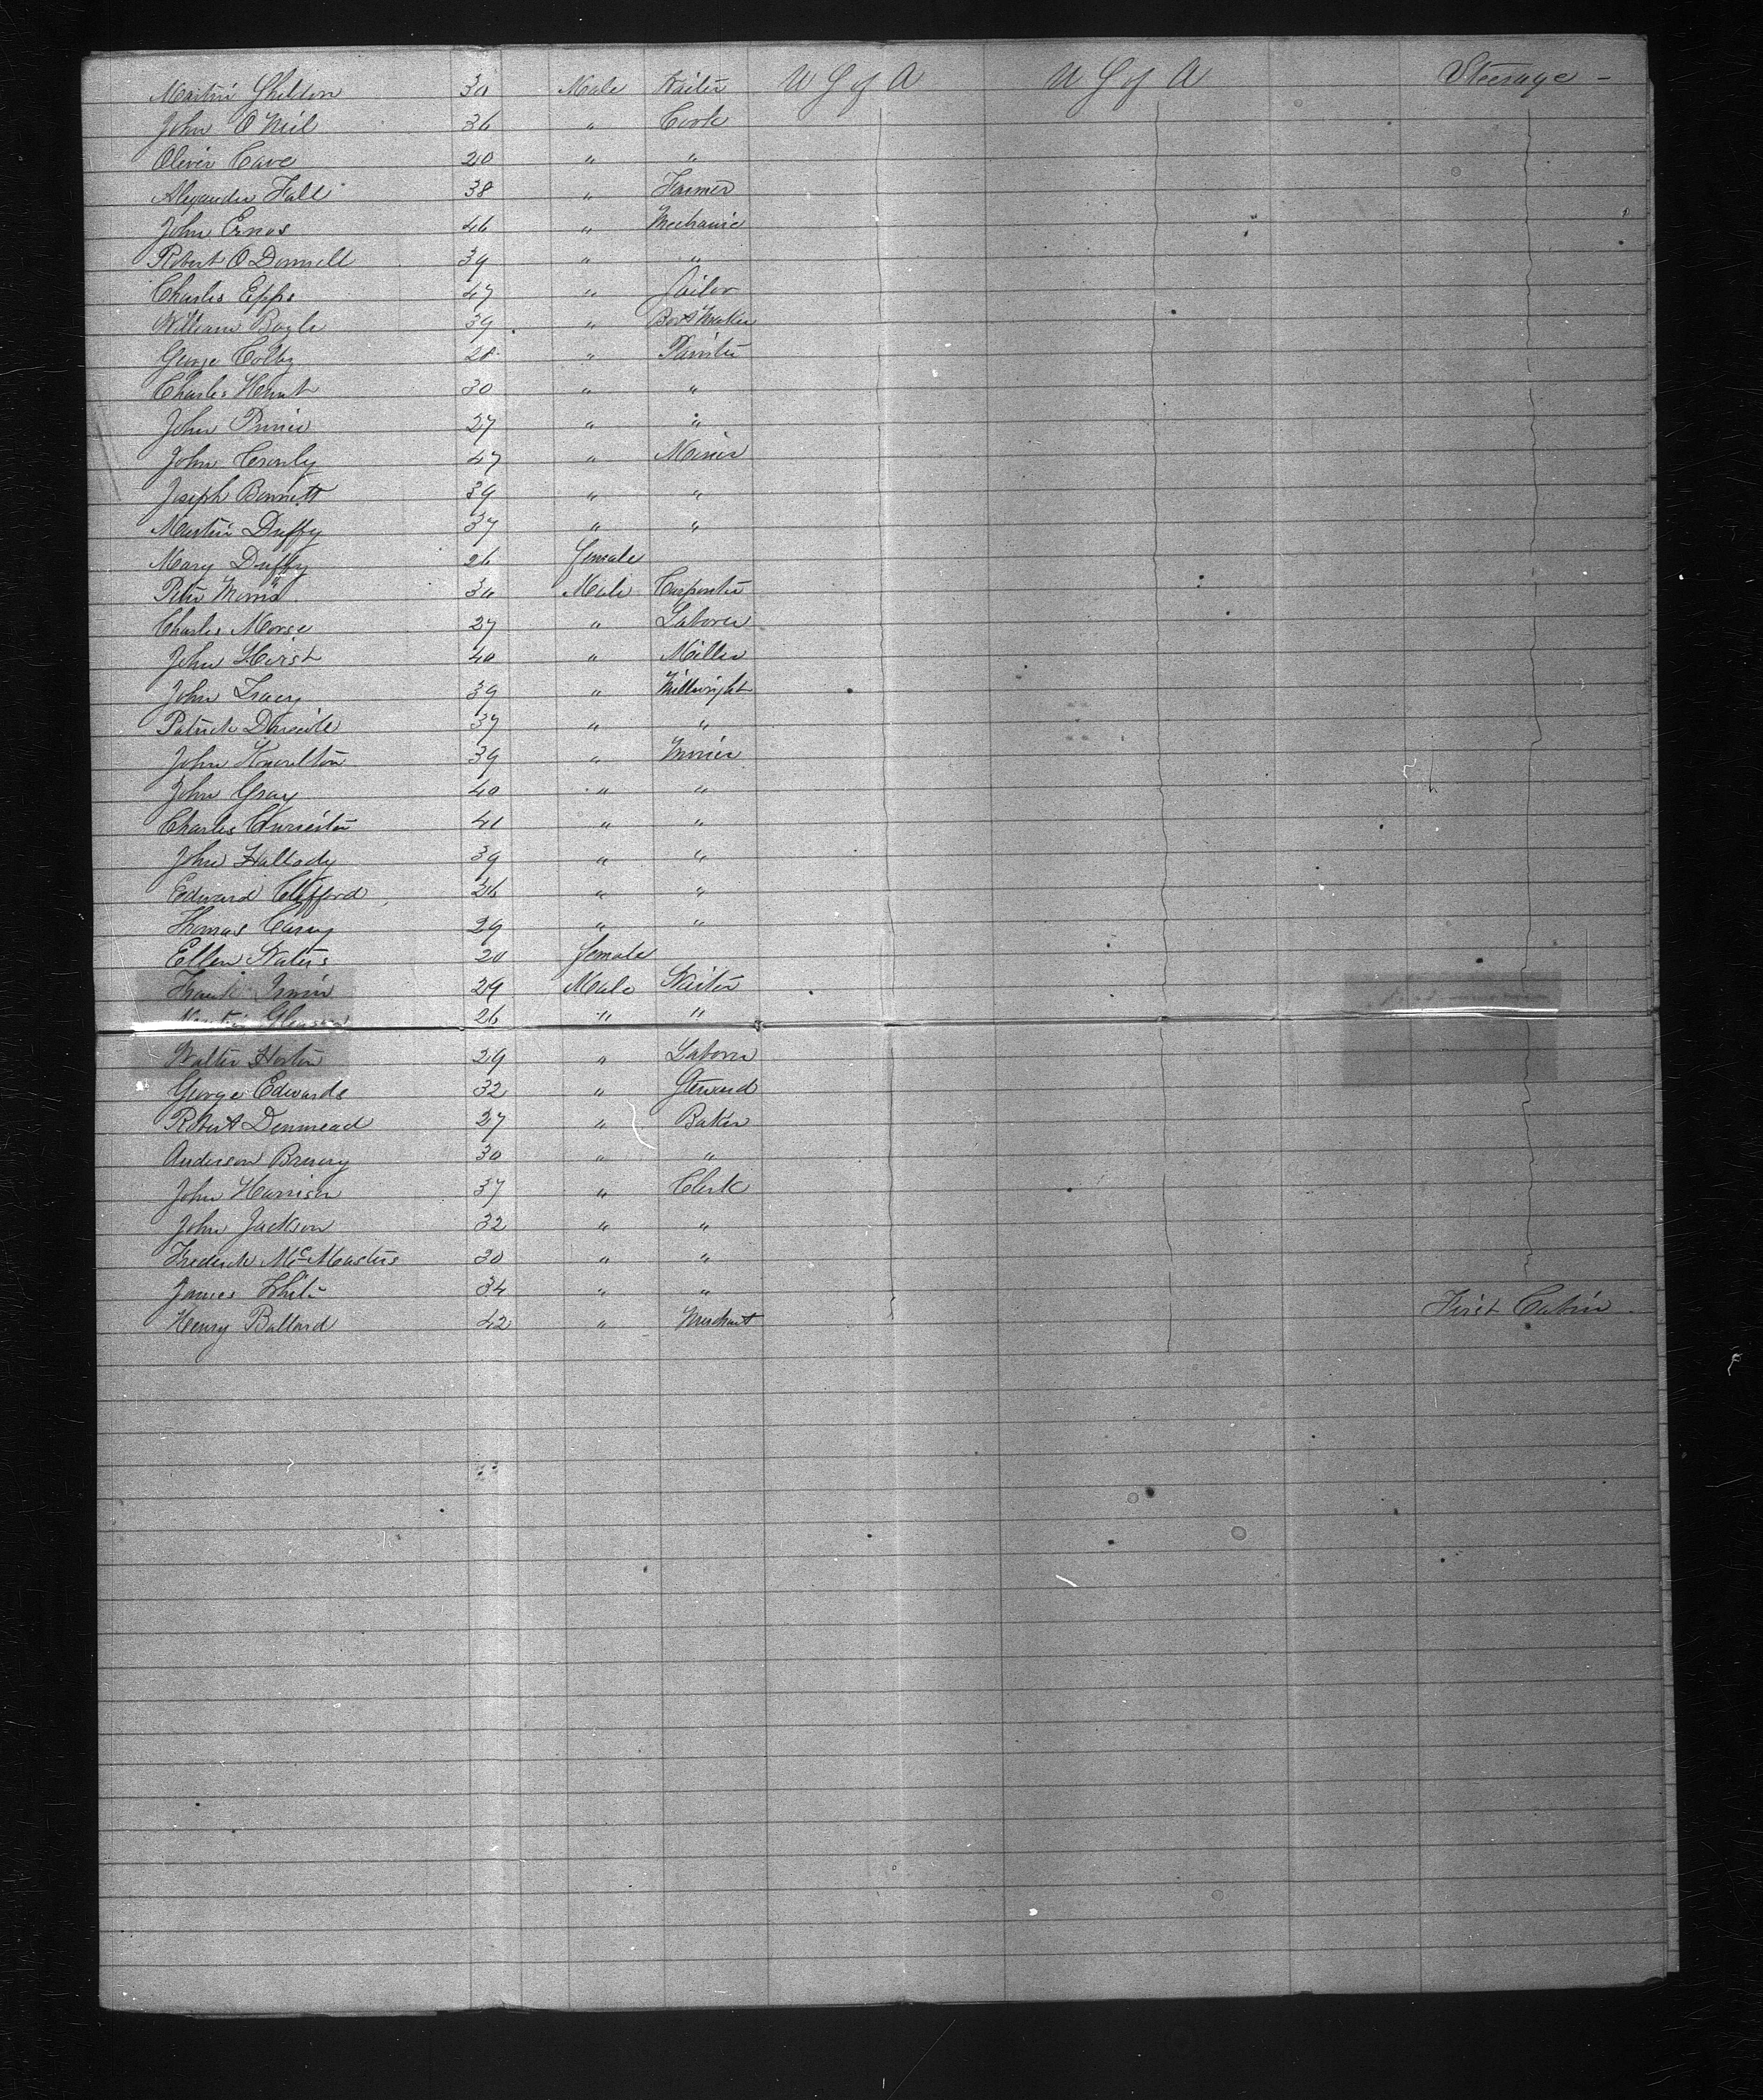 Martin Sheldon 30 Male Waiter U S of A U S of A Steerage -
John O Neil 36 " Cook
Oliver Cave 20 " "
Alexander Hall 38 " Farmer
John Ernos 46 " Mechanic
Robert O Donnell 39 " "
Charles Epps 47 " Sailor
William Boyle 39 " Boot Maker
George Colby 28 " Painter
Charles Hunt 30 " "
John Prince 27 " "
John Crosnly 47 " Miner
Joseph Bennett 39 " "
Martin Duffy 37 " "
Mary Duffy 26 female
Peter Morris 30 Male Carpenter
Charles Morse 27 " Laborer
John Hirst 40 " Miller
John Tracy 39 " Millwright
Patrick 37 " "
John Knowlton 39 " Miner
John Gray 40 " "
Charles 41 " "
John Hallady 39 " "
Edward Clifford 26 " "
Thomas Carey 29 " "
Ellen Waters 20 female
Frank Irwin 29 Male Waiter
Gleason 26 " "
Walter Horton 29 " Laborer
George Edwards 32 " Steward
Robert Denmead 27 " Baker
Anderson Brewry 30 " "
John Harrison 37 " Clerk
John Jackson 32 " "
Frederick McMasters 30 " "
James White 34 " "
Henry Ballard 42 " Merchant First Cabin